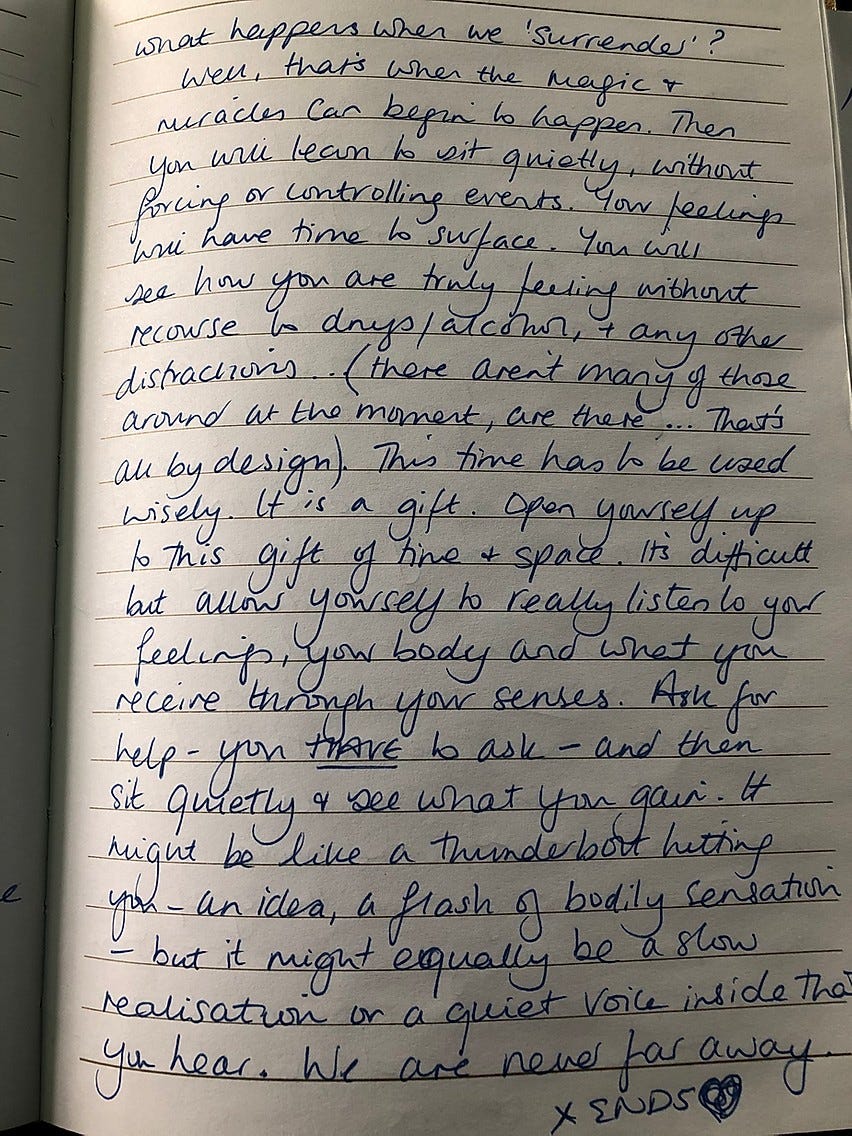 what happens when we 'surrender'?
Well, that's when the magic &
miracles can begin to happen. Then
you will learn to sit quietly, without
forcing or controlling events. Your feelings
will have time to surface. You will
see how you are truly feeling without
recourse to drugs/alcohol, + any other
distractions... (there aren't many of those
around at the moment, are there... That's
all by design). This time has to be used
wisely. It is a gift. Open yourself up
to this gift of time & space. It's difficult
but allow yourself to really listen to your
feelings, your body and what you
receive through your senses. Ask for
help - you HAVE to ask - and then
sit quietly & see what you gain. It
might be like a thunderbolt hitting
you - an idea, a flash of bodily sensation
- but it might equally be a slow
realisation or a quiet voice inside that
you hear. We are never far away.
x ENDS
e